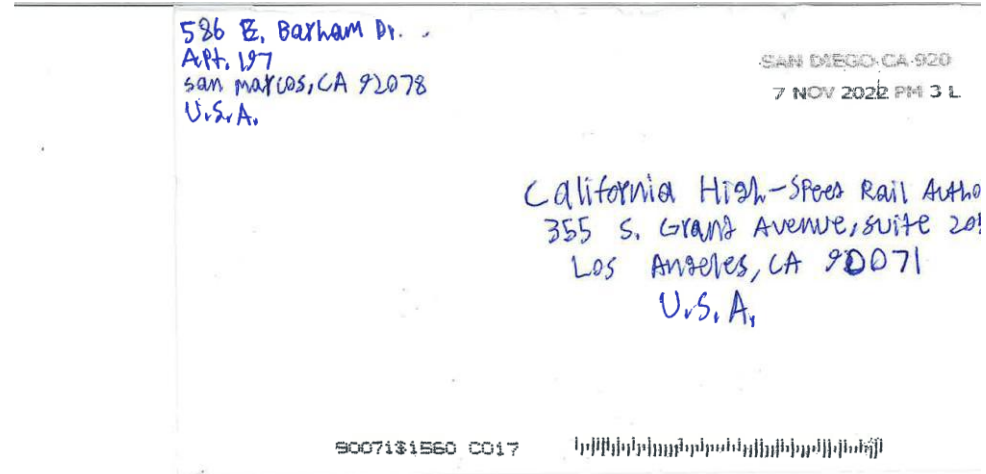 586 E. Barham Dr.
Apt. 197
San Marcos, CA 92078
U.S.A.
SAN DIEGO CA 920
7 NOV 2022 PM 3 L
California High-Speed Rail Autho
355 S. Grand Avenue, Suite 205
Los Angeles, CA 90071
U.S.A.
90071$1560 C017